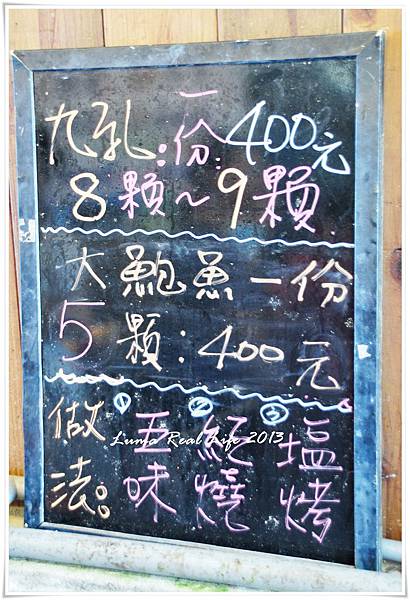 九孔:一份:400元
8顆~9顆
大鮑魚一份
5顆:400元
做法:
①五味
②紅燒
③塩烤
Lumo Real Life 2013